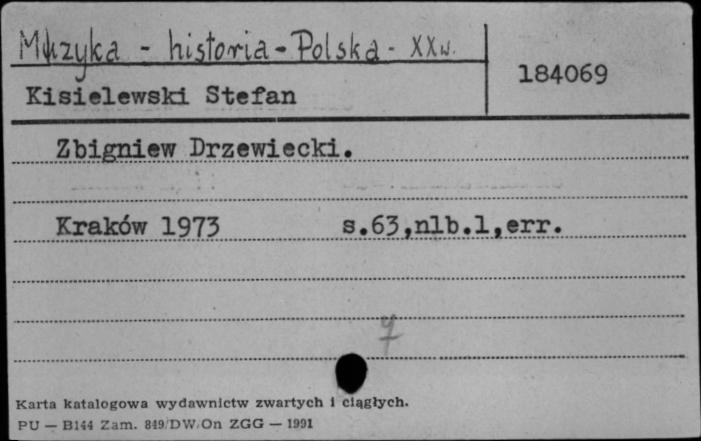 Muzyka - historia - Polska - XX w.
184069
Kisielewski Stefan
Zbigniew Drzewiecki.
Kraków 1973 s.63,nlb.1,err.
7
Karta katalogowa wydawnictw zwartych i ciągłych.
PU — B144 Zam. 849/DW/On ZGG — 1991